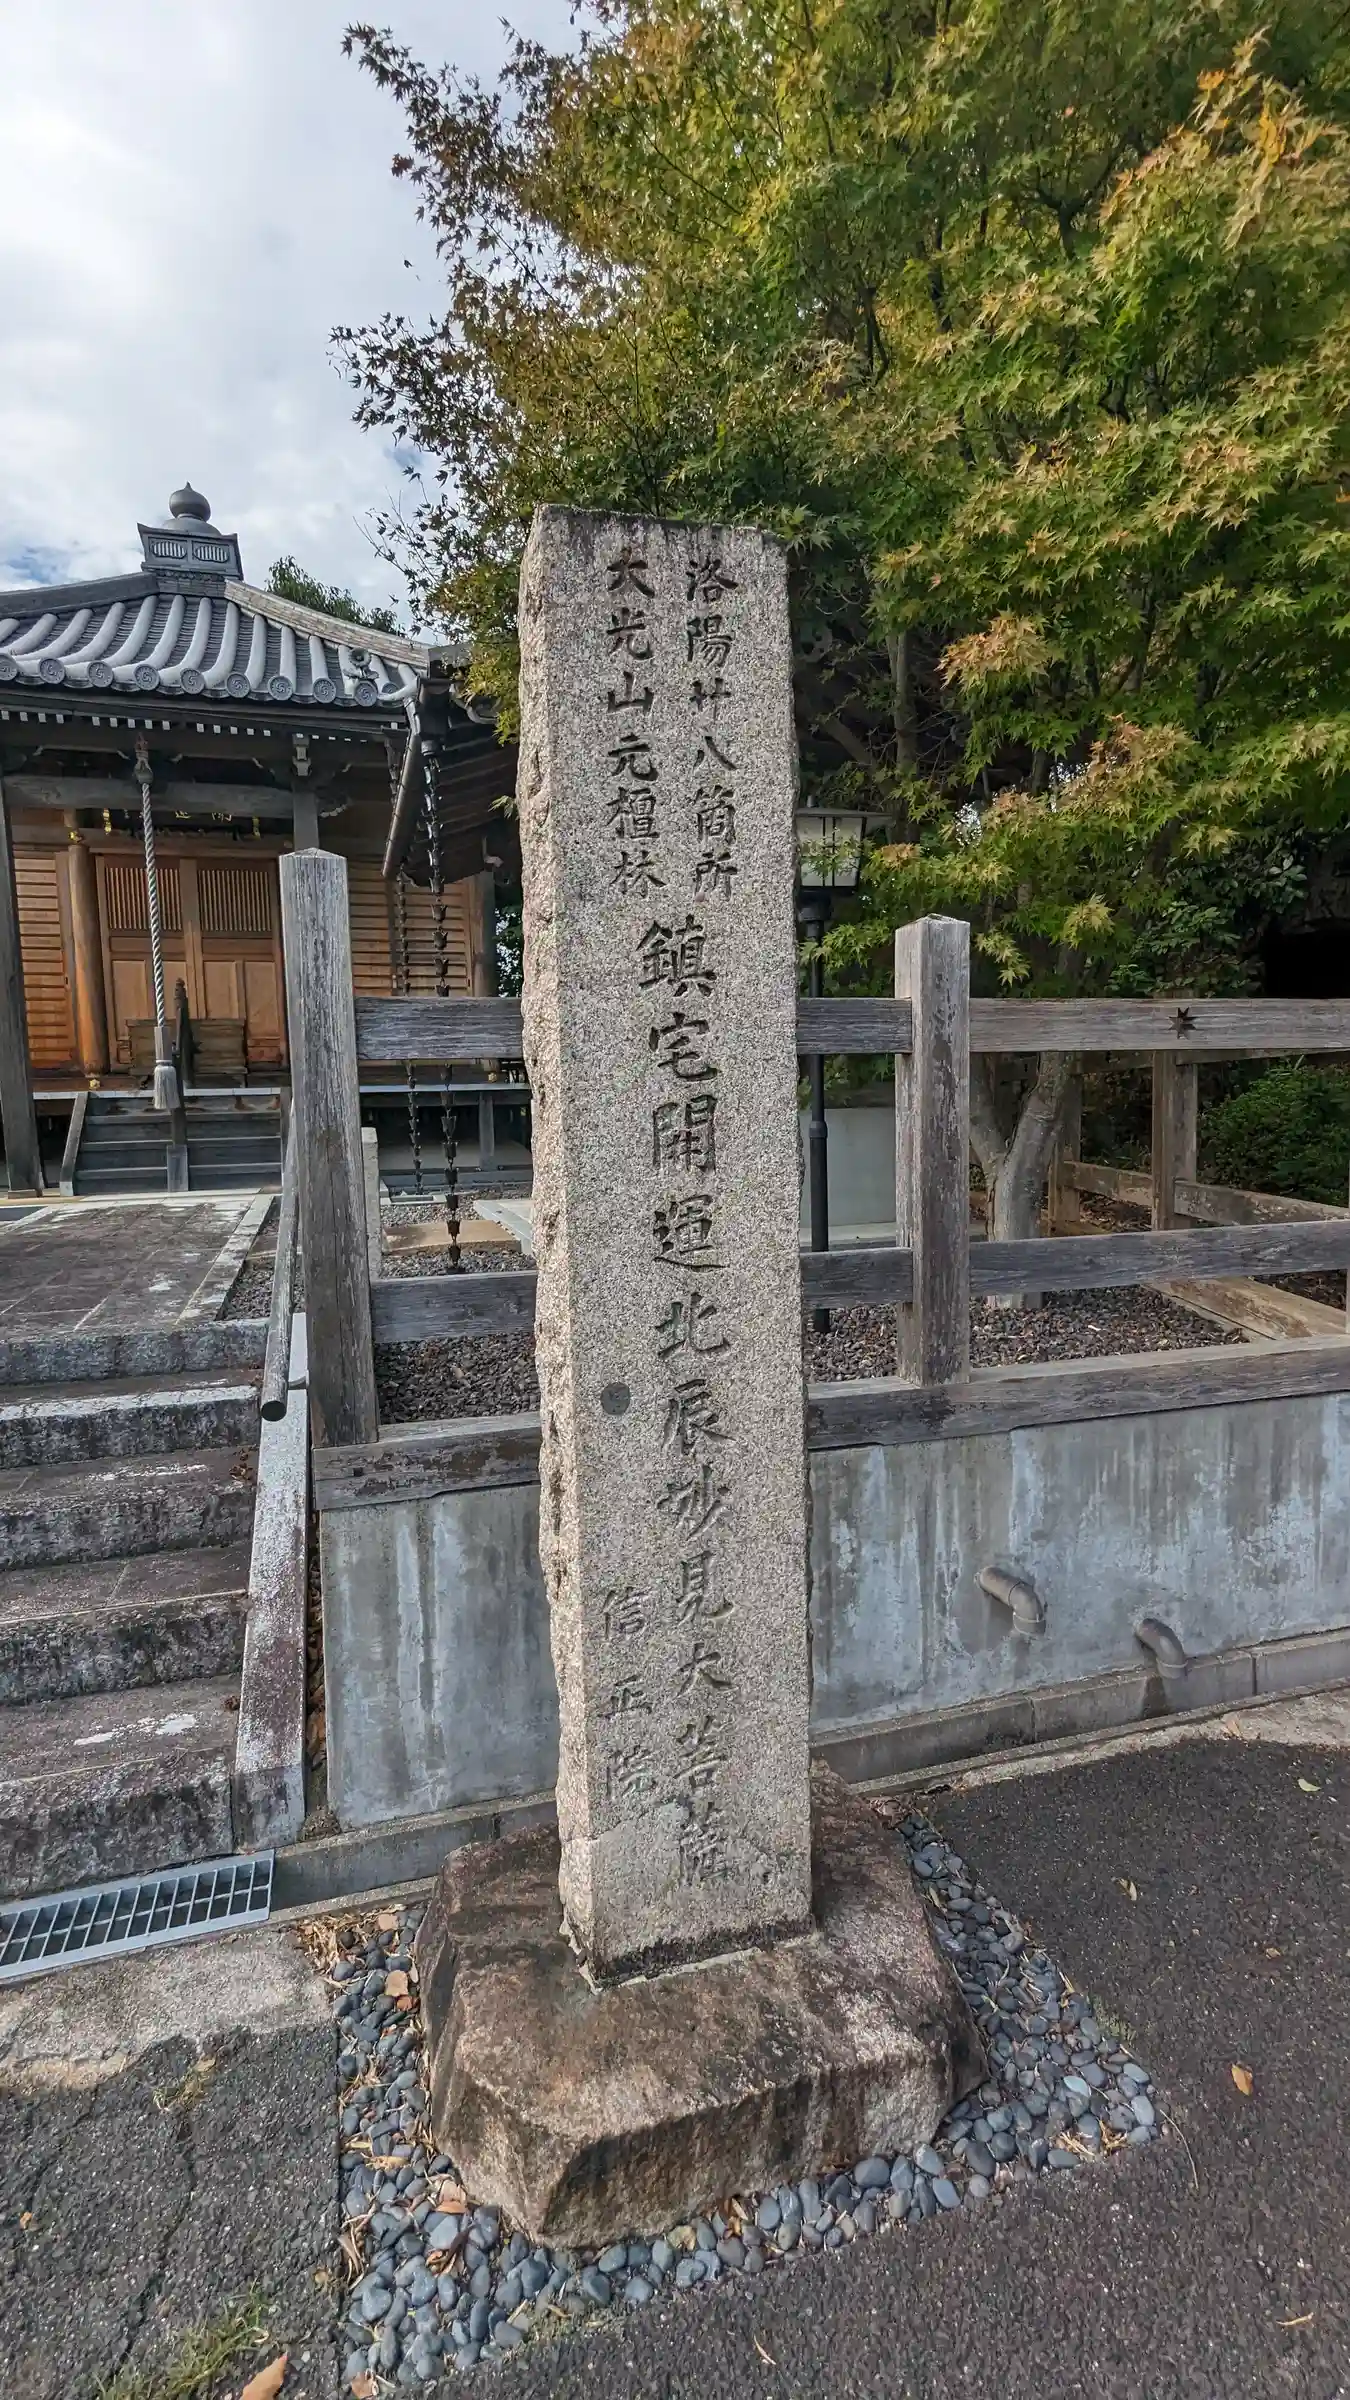 洛陽廿八箇所
大光山元檀林
鎮宅開運北辰妙見大菩薩
信正院